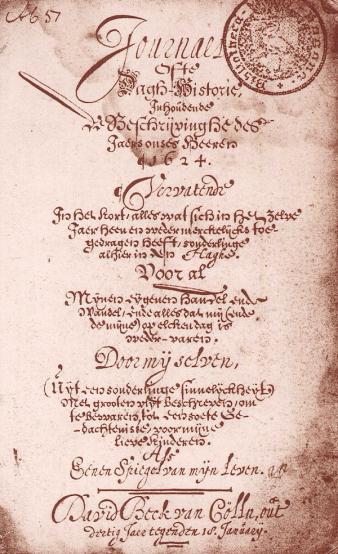 Ab 57
Journael
Ofte
Dagh-Historie
Inhoudende
de Beschrijvinghe des
Jaers onses Heeren
1624.
Vervatende
In het kort, alles wat sich in het zelve
Jaer heen en weder merckelijcks toe-
gedragen heeft, sonderlinge
alhier in den Haghe.
Voor al
Mijnen eygenen handel ende
wandel, ende alles dat mij (ende
de mijne) op elcken dag is
weder-varen.
Door mij selven,
(Uijt een sonderlinge sinnelijckheyt)
Met grooten vlijt beschreven, om
te bewaren, tot een soete Ge-
dachtenisse, voor mijne
lieve kinderen.
Als
Eenen Spiegel van mijn Leven.
David Beck van Cölln, out
dertig Jaer tegenden 18. January.